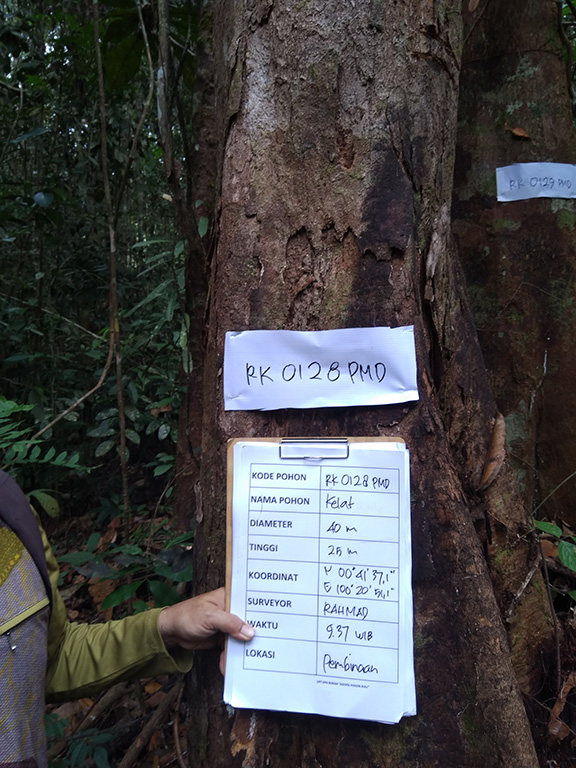 RK 0129 PMD
RK 0128 PMD
KODE POHON RK 0128 PMD
NAMA POHON Kelat
DIAMETER 40 m
TINGGI 25 m
KOORDINAT Y 00°41'37,1"
E 100°20'51,1"
SURVEYOR RAHMAD
WAKTU 9.37 WIB
LOKASI Pembinaan